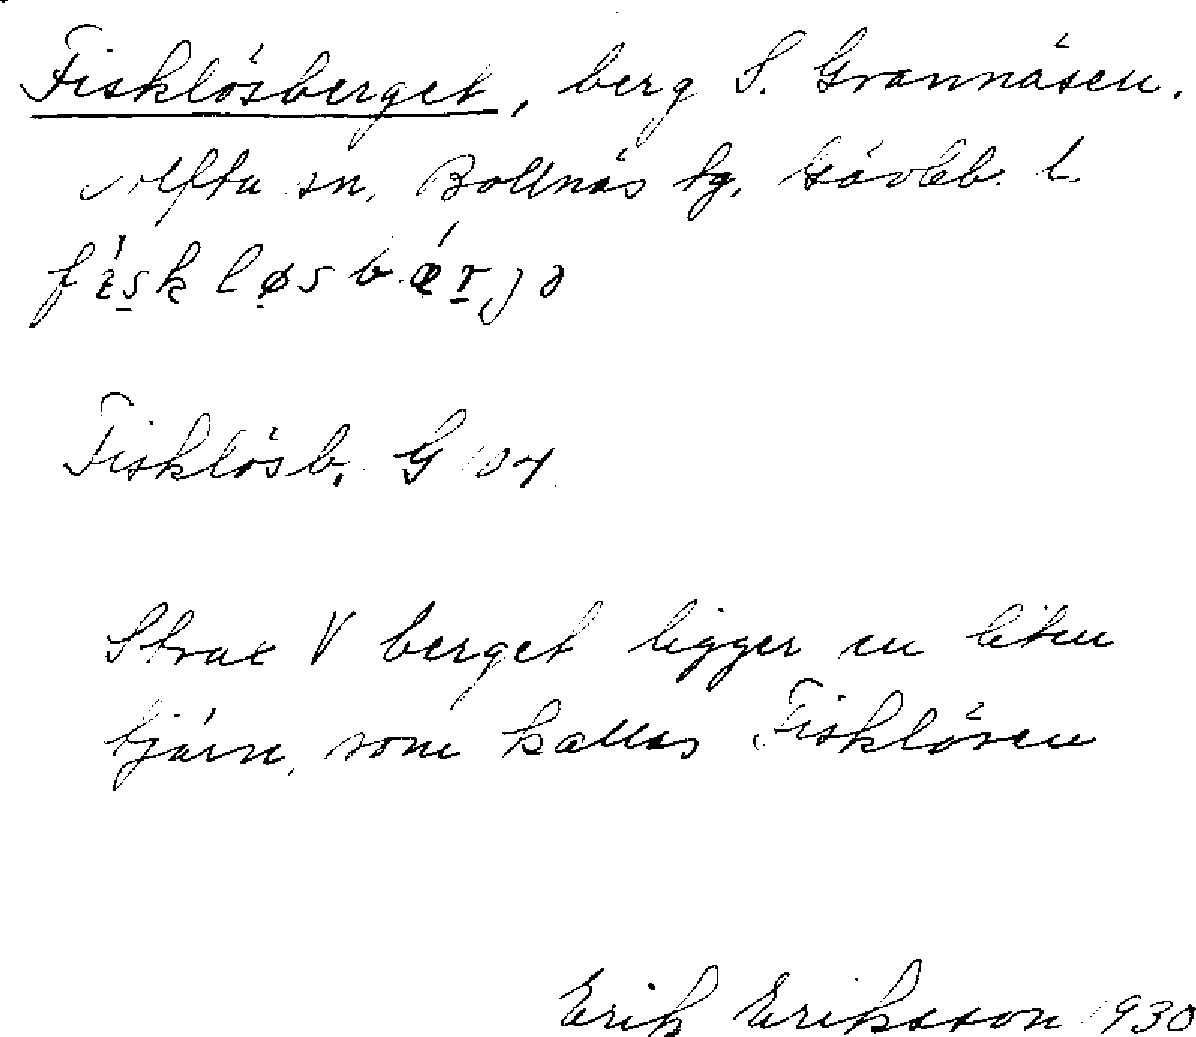 Fisklösberget, berg S. Grannåsen.
Alfta sn. Bollnäs tg. Gävleb. l.
Fisklösb. G 104
Strax V berget ligger en liten
tjärn, som kallas Fisklösen
Erik Eriksson 1930